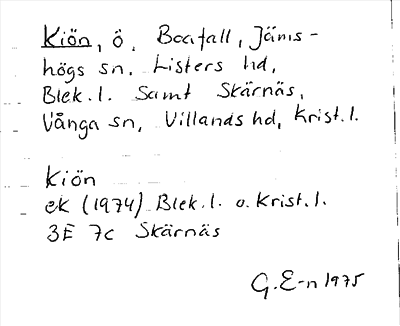 Kiön, ö, Boafall, Jäms-
högs sn, Listers hd,
Blek.l. Samt Skärnäs,
Vånga sn, Villands hd, Krist.l.
Kiön
ek (1974) Blek.l. o. Krist.l.
3E 7c Skärnäs
G. E-n 1975